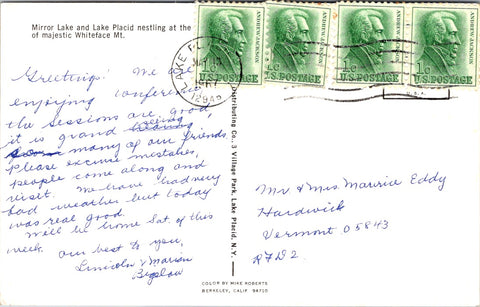 Mirror Lake and Lake Placid nestling at the
of majestic Whiteface Mt.
ANDREW JACKSON
1c
U.S. POSTAGE
ANDREW JACKSON
1c
U.S. POSTAGE
ANDREW JACKSON
1c
U.S. POSTAGE
ANDREW JACKSON
1c
U.S. POSTAGE
LAKE PL
12946
U.S.A.
Greetings! We are
enjoying conference
the sessions are good,
it is grand seeing
many of our friends
please excuse mistakes,
people come along and
visit. We have had very
bad weather but today
was real good.
Will be home Sat. of this
week. our best to you,
Lincoln & Marion
Bigelow
Distributing Co., 3 Village Park, Lake Placid, N. Y.
Mr & Mrs. Maurice Eddy
Hardwick
Vermont 05843
RFD2
COLOR BY MIKE ROBERTS
BERKELEY, CALIF. 94710